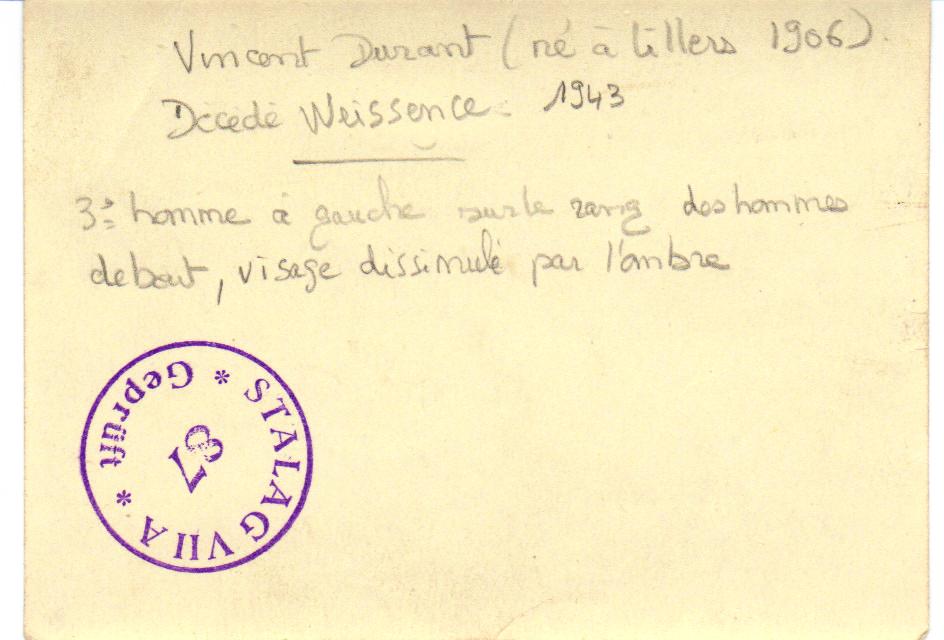 Vincent Durant (né à lillers 1906).
Décédé Weissence. 1943
3è homme à gauche sur le rang des hommes
debout, visage dissimulé par l'ombre
STALAG VII A * Geprüft *
87